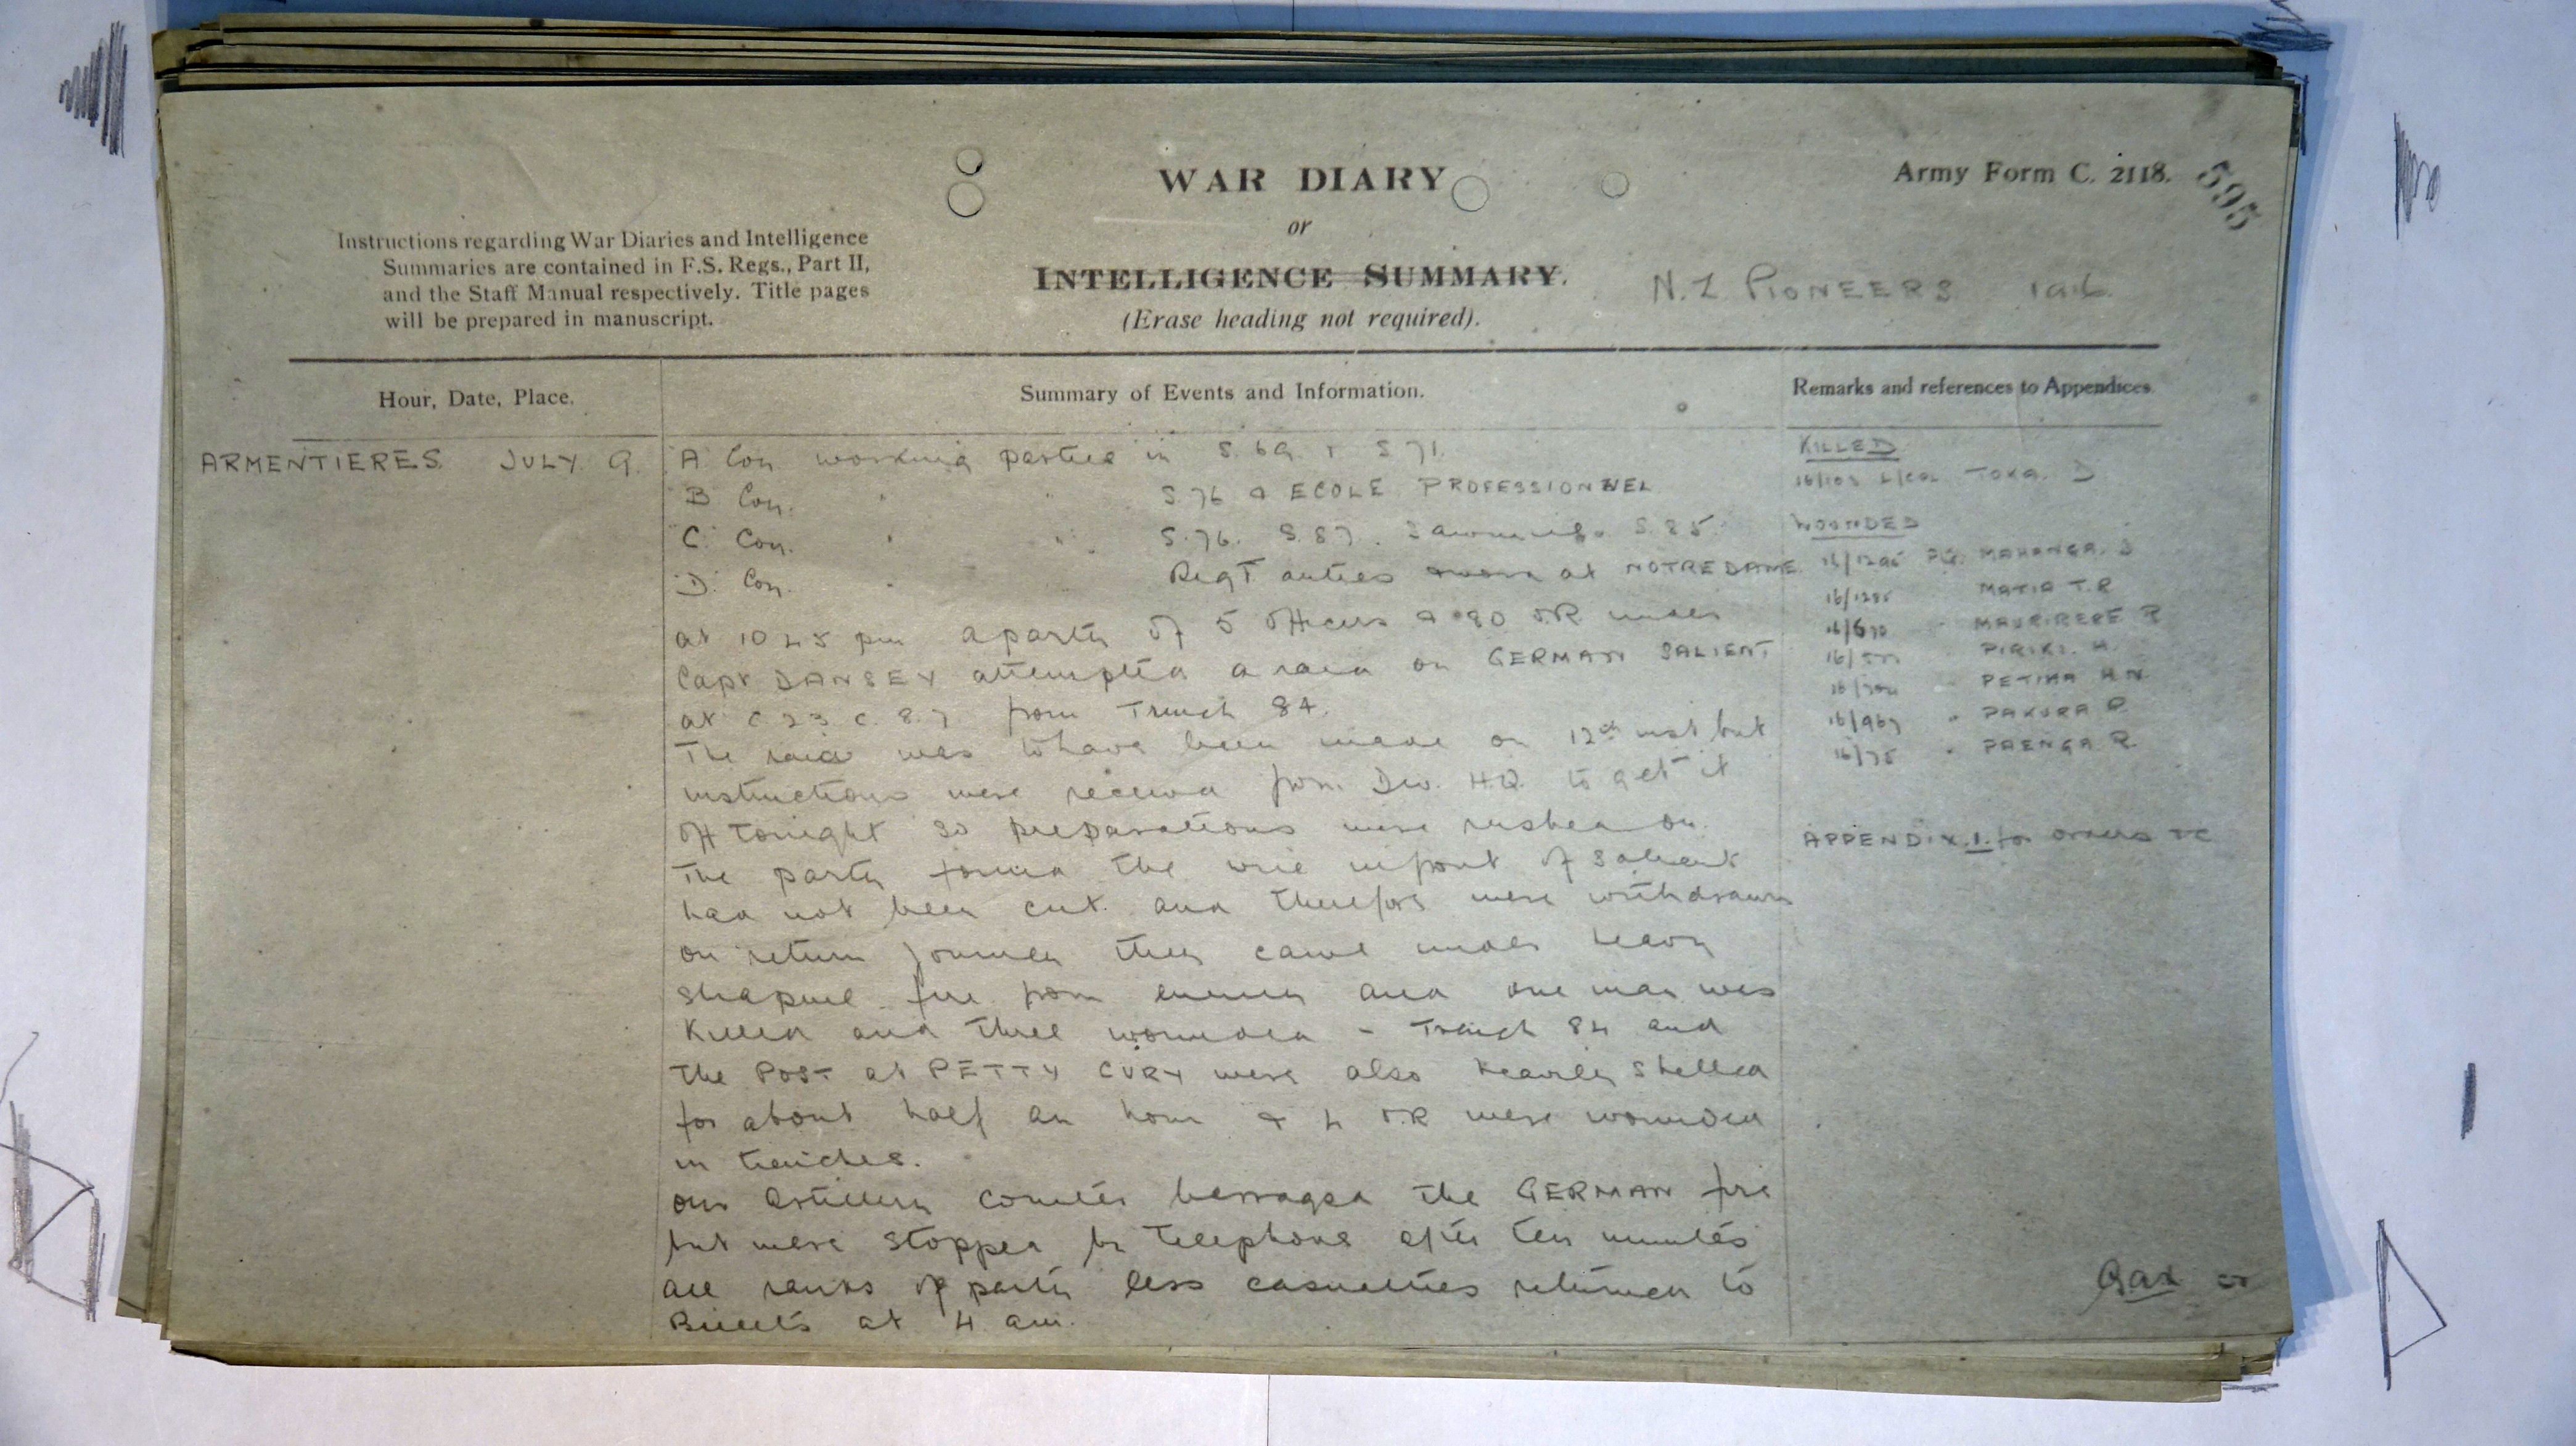 WAR DIARY
or
INTELLIGENCE SUMMARY.
(Erase heading not required).
Army Form C. 2118.
595
Instructions regarding War Diaries and Intelligence
Summaries are contained in F.S. Regs., Part II,
and the Staff Manual respectively. Title pages
will be prepared in manuscript.
N.Z PIONEERS 1916
Hour, Date, Place.
Summary of Events and Information.
Remarks and references to Appendices.
ARMENTIERES JULY 9.
A Coy working parties in S.69 & S 71.
B Coy. " " S 76 & ECOLE PROFESSIONNEL
C. Coy. " " S.76. S.87. Sawmills S.85.
D. Coy. " " at NOTRE DAME.
at 10 45 pm a party of 5 officers & 80 O.R under
Capt DANSEY attempted a raid on GERMAN SALIENT
at C 23 C. 8.7 from Trench 84.
The raid was to have been made on 12th inst but
instructions were received from Div. H.Q. to get it
off tonight so preparations were rushed on.
The party found the wire in front of Salient
had not been cut. and therefore were withdrawn
on return journey they came under heavy
shrapnel fire from enemy and one man was
Killed and three wounded - Trench 84 and
the POST at PETTY CURY were also heavily shelled
for about half an hour & 4 O.R were wounded
in trenches.
our Artillery counter barraged the GERMAN fire
but were stopped by telephone after ten minutes
all ranks of party less casualties returned to
Billets at 4 am.
KILLED
L/Col TOKA. D
WOUNDED
MAHANGA. J
MATIA T.R
MAURIRERE P
PIRIKI. H.
PETIHA H.N.
16/967 " PAKURA P
16/75 " PAENGA R
APPENDIX. 1. for orders etc